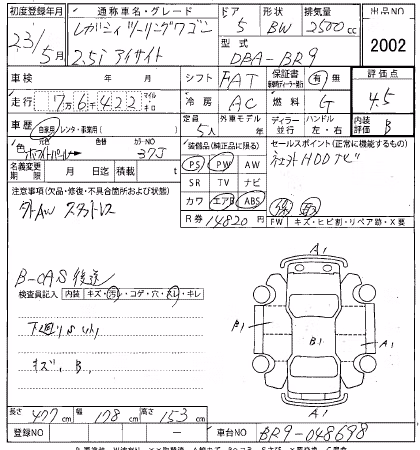 初度登録年月 通称車名・グレード ドア 形状 排気量 出品NO
23/5月 レガシィツーリングワゴン 5 BW 2500cc 2002
2.5i アイサイト 型式 DBA-BR9
車検 年 月 シフト FAT 保証書 有・無 評価点
走行 7万6千422 マイル キロ 冷房 AC 燃料 G 4.5
車歴 自家用・レンタ・事業用( ) 定員 5人 外車モデル 年 ディーラー 並行 ハンドル 左・右 内装評価 B
色 元色 カラーNO 37J 装備品(純正品に限る) セールスポイント(正常に機能するもの)
名義変更期限 月 日迄 積載 t PS PW AW
SR TV ナビ HDDナビ
注意事項(欠品・修復・不具合箇所および状態) カワ エアB ABS
社外AW スタッドレス R券 14820円 FW キズ・ヒビ割・リペア跡・X要
B-CAS後送
検査員記入 内装 キズ・汚レ・コゲ・穴・スレ・キレ
A1
B1 B1 A1
キズ、B、
A1
長さ 477cm 幅 178cm 高さ 153cm
登録NO 車台NO BR9-048698